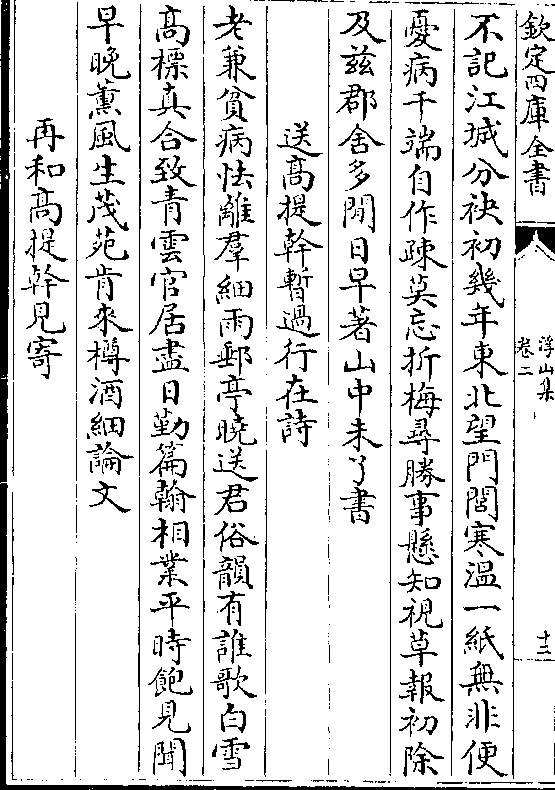 欽定四庫全書
浮山集
卷二
十三
不記江城分袂初幾年東北望門閭寒溫一紙無非便
憂病千端自作疎莫忘折梅尋勝事懸知視草報初除
及兹郡舍多閒日早著山中未了書
送高提幹暫過行在詩
老兼貧病怯離羣細雨郵亭曉送君俗韻有誰歌白雪
高標真合致青雲官居盡日勤篇翰相業平時飽見聞
早晚薰風生茂苑肯來樽酒細論文
再和高提幹見寄